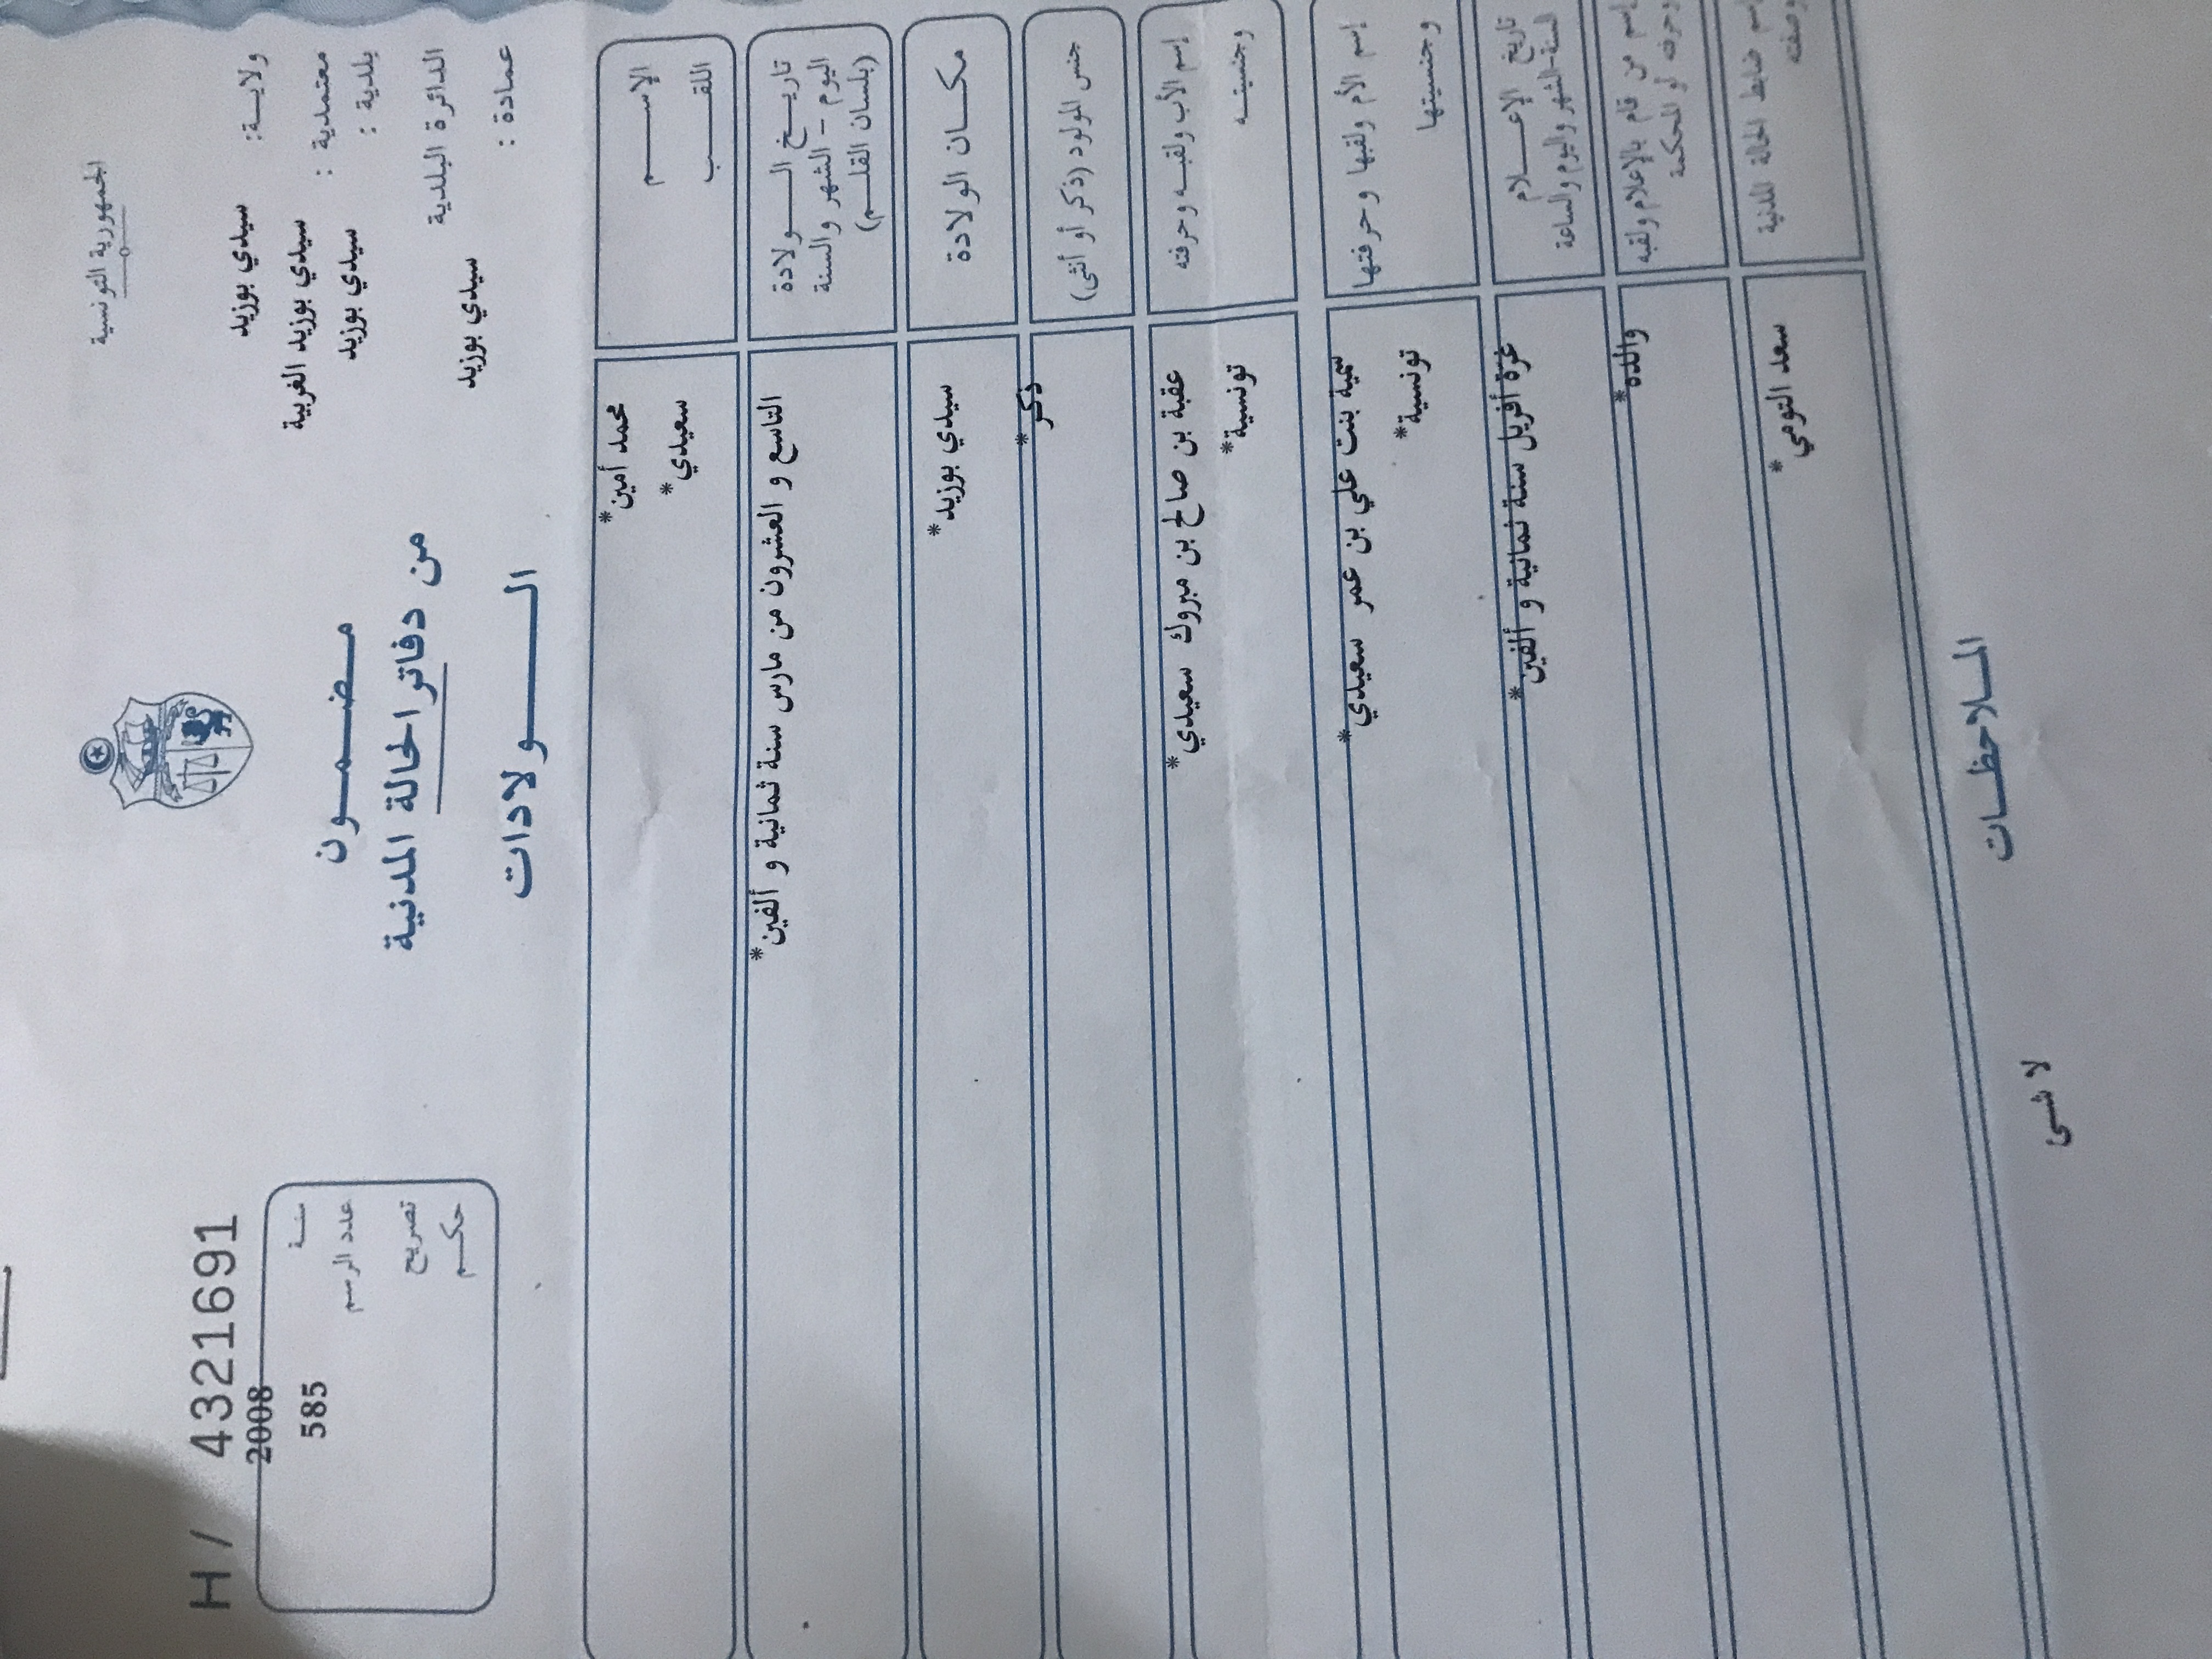 الجمهورية التونسية
ولايـــة: سيدي بوزيد
معتمدية : سيدي بوزيد الغربية
بلدية : سيدي بوزيد
الدائرة البلدية
سيدي بوزيد
عمادة :
مـضـمـــون
من دفاتر الحالة المدنية
الـــولادات
H/ 4321691
2008
سنـــة
585
عدد الرسم
تصريح
حكـــم
الإســـــم
محمد أمين*
اللقـــــب
سعيدي*
تاريــــخ الـــــولادة
اليوم - الشهر والسنة
(بلسان القلـــم)
التاسع و العشرون من مارس سنة ثمانية و ألفين*
مكـــان الولادة
سيدي بوزيد*
جنس المولود (ذكر أو أنثى)
ذكر*
إسم الأب ولقبـــه وحرفته
عقبة بن صالح بن مبروك سعيدي*
وجنسيتـــه
تونسية*
إسم الأم ولقبها وحرفتها
سمية بنت علي بن عمر سعيدي*
وجنسيتها
تونسية*
تاريخ الإعـــــلام
السنة-الشهر واليوم والساعة
غرة أفريل سنة ثمانية و ألفين*
إسم من قام بالإعلام ولقبه
وحرفته أو المحكمة
والده*
إسم ضابط الحالة المدنية
وصفته
سعد التومي*
المـــلاحظـــات
لا شىء